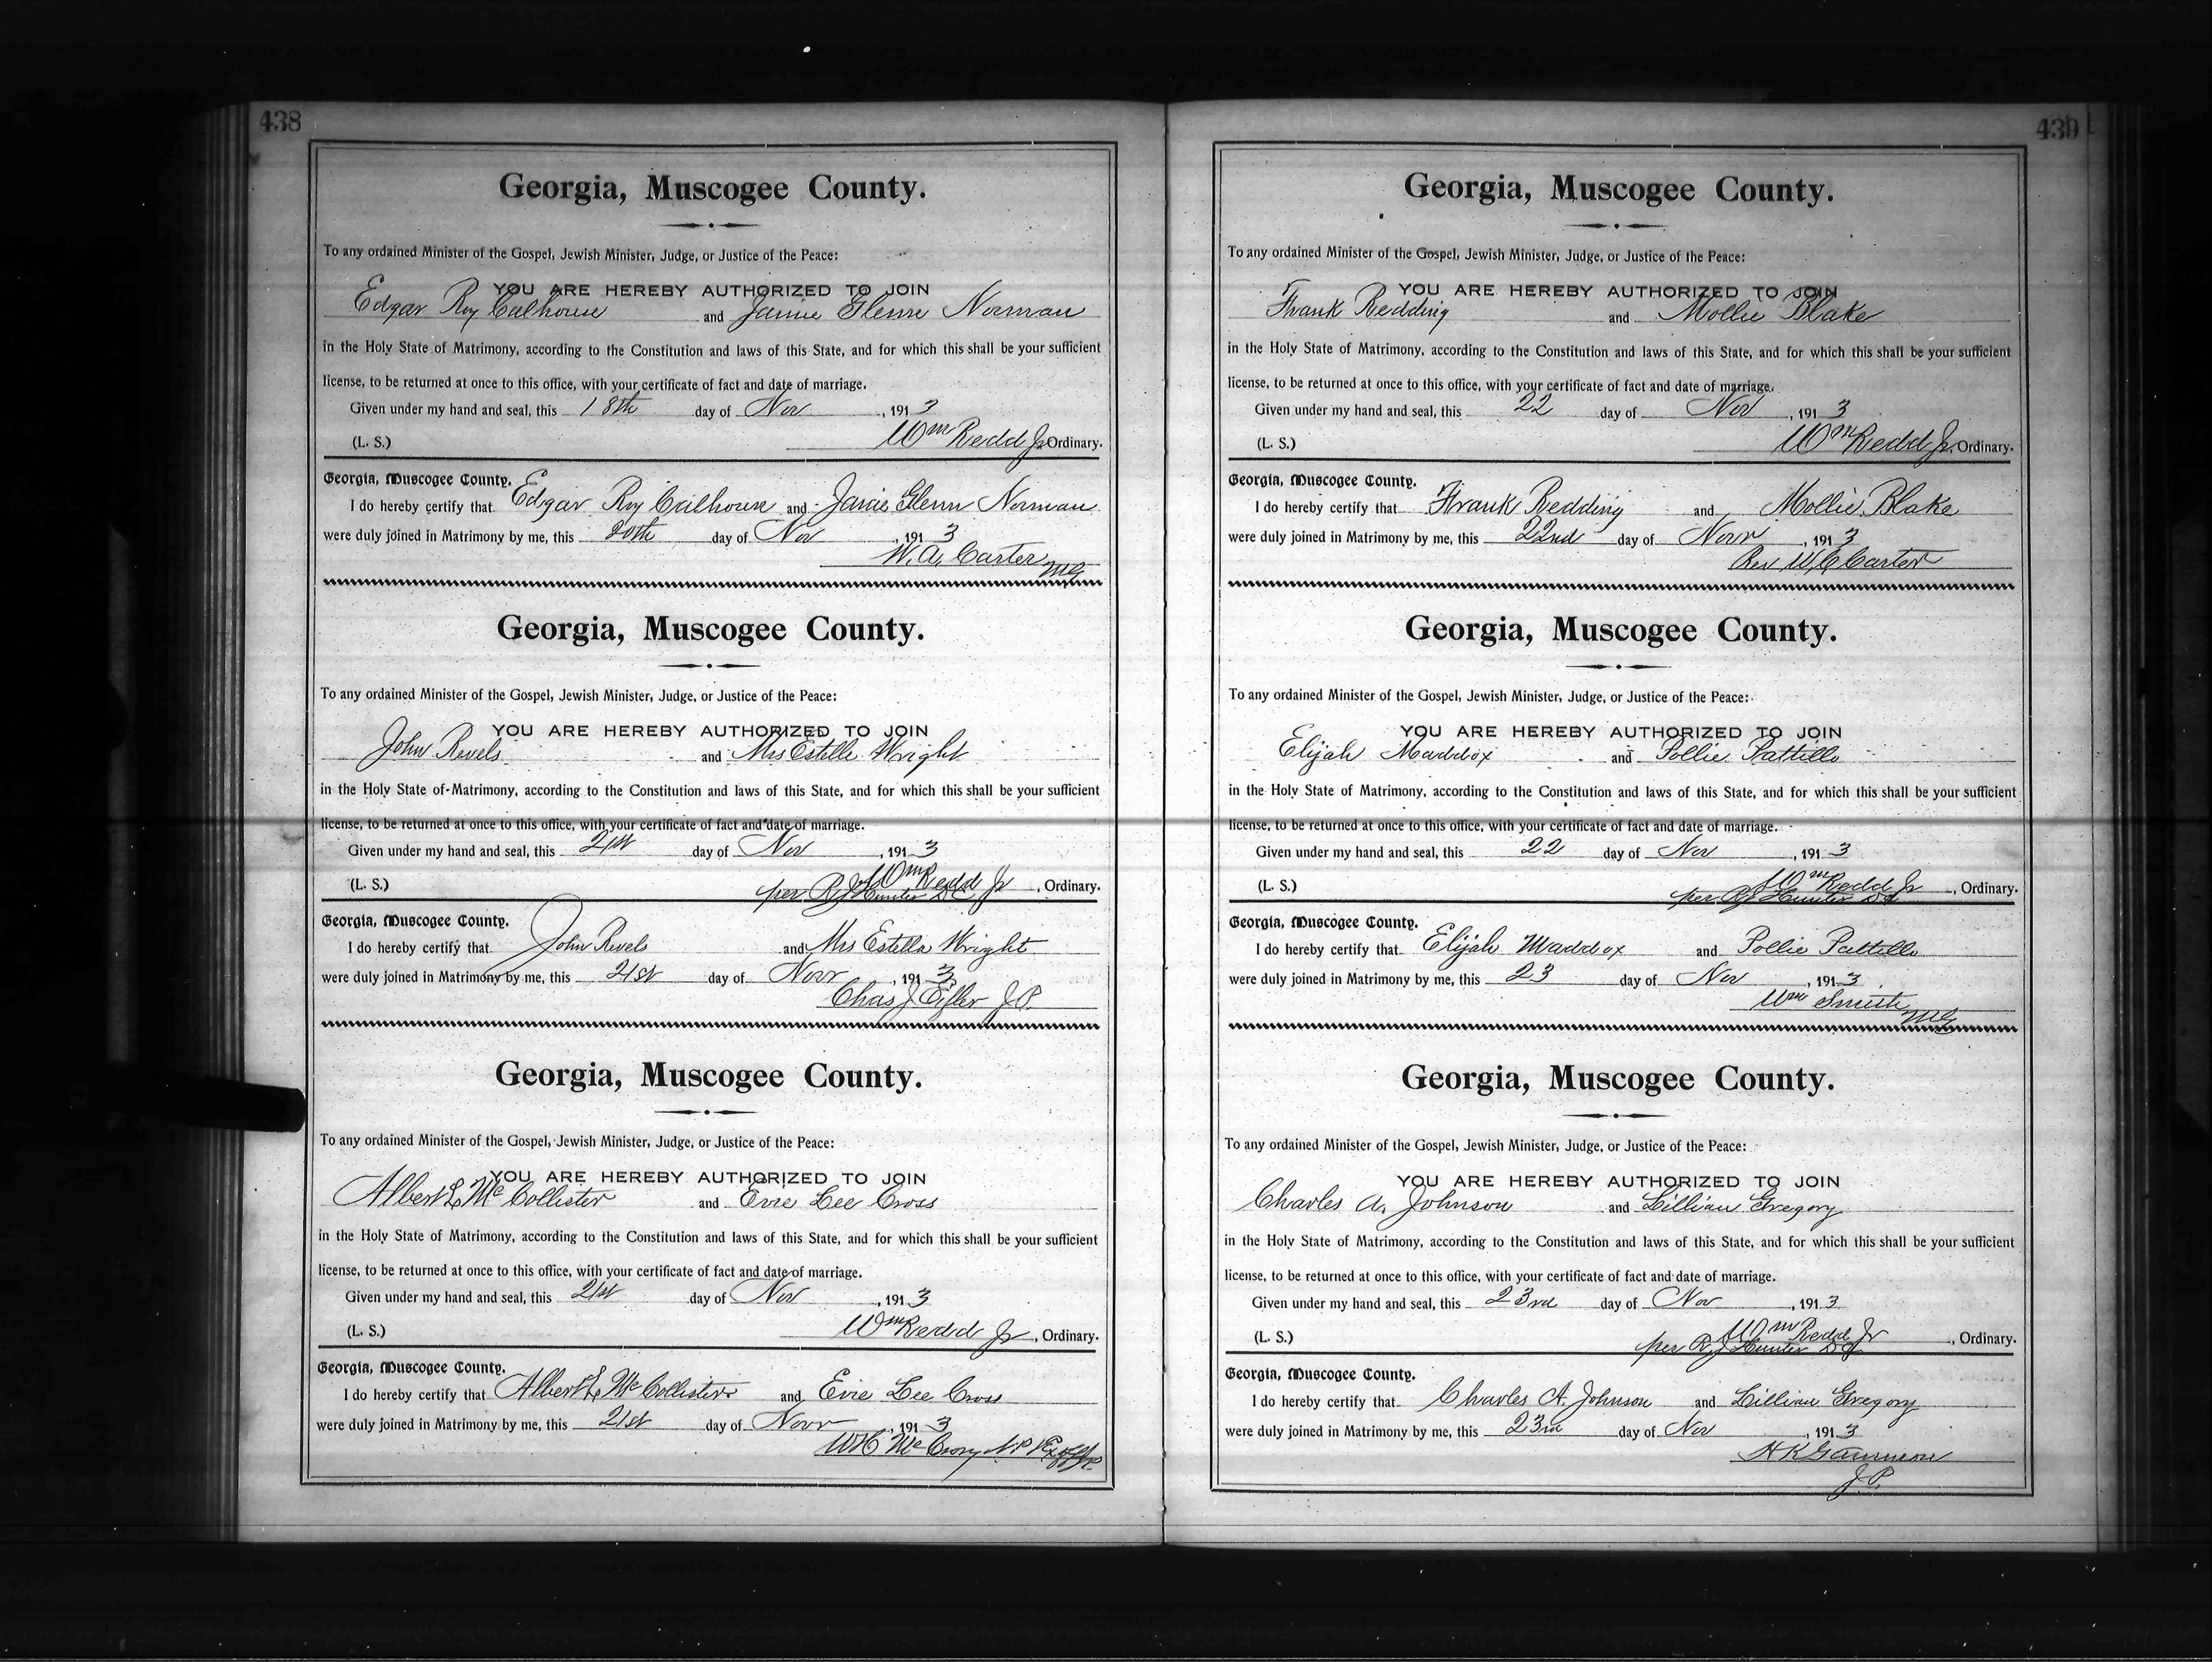 438
Georgia, Muscogee County.
To any ordained Minister of the Gospel, Jewish Minister, Judge, or Justice of the Peace:
YOU ARE HEREBY AUTHORIZED TO JOIN
Edgar Roy Calhoun and Janie Glenn Norman
in the Holy State of Matrimony, according to the Constitution and laws of this State, and for which this shall be your sufficient
license, to be returned at once to this office, with your certificate of fact and date of marriage.
Given under my hand and seal, this 18th day of Nov, 1913
(L. S.) Wm Redd Jr Ordinary.
Georgia, Muscogee County.
I do hereby certify that Edgar Roy Calhoun and Janie Glenn Norman
were duly joined in Matrimony by me, this 20th day of Nov, 1913
W. A. Carter MG
Georgia, Muscogee County.
To any ordained Minister of the Gospel, Jewish Minister, Judge, or Justice of the Peace:
YOU ARE HEREBY AUTHORIZED TO JOIN
John Revels and Mrs Estelle Wright
in the Holy State of Matrimony, according to the Constitution and laws of this State, and for which this shall be your sufficient
license, to be returned at once to this office, with your certificate of fact and date of marriage.
Given under my hand and seal, this 21st day of Nov, 1913
(L. S.) Wm Redd Jr, Ordinary.
per R J Hunter DC
Georgia, Muscogee County.
I do hereby certify that John Revels and Mrs Estella Wright
were duly joined in Matrimony by me, this 21st day of Novr, 1913
Chas J Eifler J.P.
Georgia, Muscogee County.
To any ordained Minister of the Gospel, Jewish Minister, Judge, or Justice of the Peace:
YOU ARE HEREBY AUTHORIZED TO JOIN
Albert L McCollister and Evie Lee Cross
in the Holy State of Matrimony, according to the Constitution and laws of this State, and for which this shall be your sufficient
license, to be returned at once to this office, with your certificate of fact and date of marriage.
Given under my hand and seal, this 21st day of Nov, 1913
(L. S.) Wm Redd Jr, Ordinary.
Georgia, Muscogee County.
I do hereby certify that Albert L McCollister and Evie Lee Cross
were duly joined in Matrimony by me, this 21st day of Novr, 1913
WH McCrory N P & Ex off J.P.
439
Georgia, Muscogee County.
To any ordained Minister of the Gospel, Jewish Minister, Judge, or Justice of the Peace:
YOU ARE HEREBY AUTHORIZED TO JOIN
Frank Redding and Mollie Blake
in the Holy State of Matrimony, according to the Constitution and laws of this State, and for which this shall be your sufficient
license, to be returned at once to this office, with your certificate of fact and date of marriage.
Given under my hand and seal, this 22 day of Nov, 1913
(L. S.) Wm Redd Jr. Ordinary.
Georgia, Muscogee County.
I do hereby certify that Frank Redding and Mollie Blake
were duly joined in Matrimony by me, this 22nd day of Novr, 1913
Rev W, C Carter
Georgia, Muscogee County.
To any ordained Minister of the Gospel, Jewish Minister, Judge, or Justice of the Peace:
YOU ARE HEREBY AUTHORIZED TO JOIN
Elijah Maddox and Pollie Pattillo
in the Holy State of Matrimony, according to the Constitution and laws of this State, and for which this shall be your sufficient
license, to be returned at once to this office, with your certificate of fact and date of marriage.
Given under my hand and seal, this 22 day of Nov, 1913
(L. S.) Wm Redd Jr, Ordinary.
per R J Hunter DC
Georgia, Muscogee County.
I do hereby certify that Elijah Maddox and Pollie Pattillo
were duly joined in Matrimony by me, this 23 day of Nov, 1913
Wm Smith MG
Georgia, Muscogee County.
To any ordained Minister of the Gospel, Jewish Minister, Judge, or Justice of the Peace:
YOU ARE HEREBY AUTHORIZED TO JOIN
Charles A. Johnson and Lillian Gregory
in the Holy State of Matrimony, according to the Constitution and laws of this State, and for which this shall be your sufficient
license, to be returned at once to this office, with your certificate of fact and date of marriage.
Given under my hand and seal, this 23rd day of Nov, 1913
(L. S.) Wm Redd Jr, Ordinary.
per R J Hunter DC
Georgia, Muscogee County.
I do hereby certify that Charles A. Johnson and Lillian Gregory
were duly joined in Matrimony by me, this 23rd day of Nov, 1913
H K Gammon
J.P.